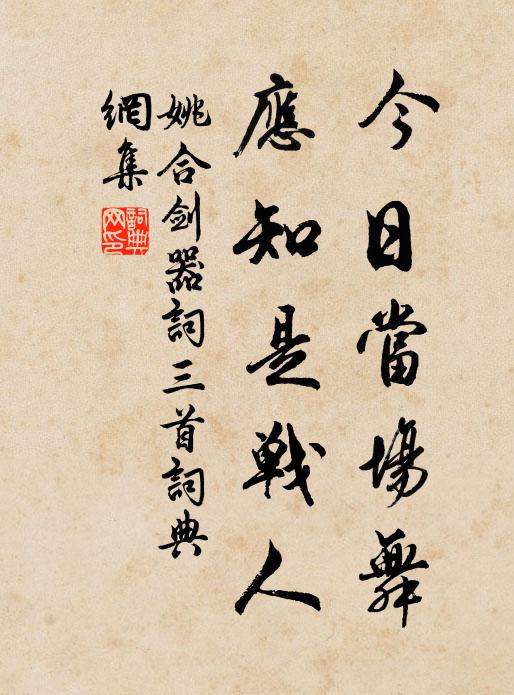 今日當場舞
應知是戰人
姚合劍器詞三首詞典
網集
詞典網印